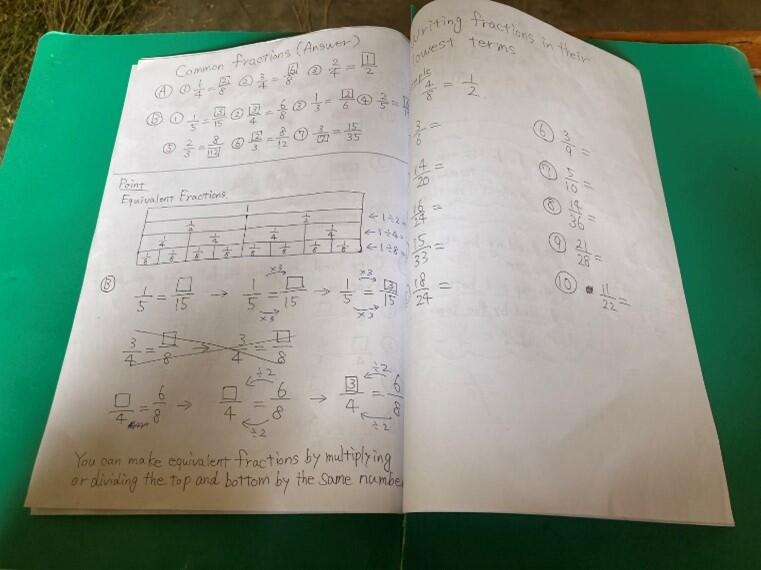 Common fractions (Answer)
Ⓐ ① 1/4 = 2/8 ② 3/4 = 6/8 ③ 2/4 = 1/2
Ⓑ ① 1/5 = 3/15 ② 3/4 = 6/8 ③ 1/3 = 2/6 ④ 2/5 =
⑤ 2/3 = 8/12 ⑥ 2/3 = 8/12 ⑦ 3/7 = 15/35
Point
Equivalent Fractions
1
1/2 1/2 ← 1÷2
1/4 1/4 1/4 1/4 ← 1÷4
1/8 1/8 1/8 1/8 1/8 1/8 1/8 1/8 ← 1÷8
Ⓑ 1/5 = □/15 → ×3 1/5 = □/15 ×3 → ×3 1/5 = 3/15 ×3
3/4 = □/8 → 3/4 = □/8
□/4 = 6/8 → ÷2 □/4 = 6/8 ÷2 → ÷2 3/4 = 6/8 ÷2
You can make equivalent fractions by multiplying
or dividing the top and bottom by the same numbe
Writing fractions in their
lowest terms
4/8 = 1/2
3/6 =
14/20 =
16/24 =
15/33 =
18/24 =
⑥ 3/9 =
⑦ 5/10 =
⑧ 14/36 =
⑨ 21/28 =
⑩ 11/22 =